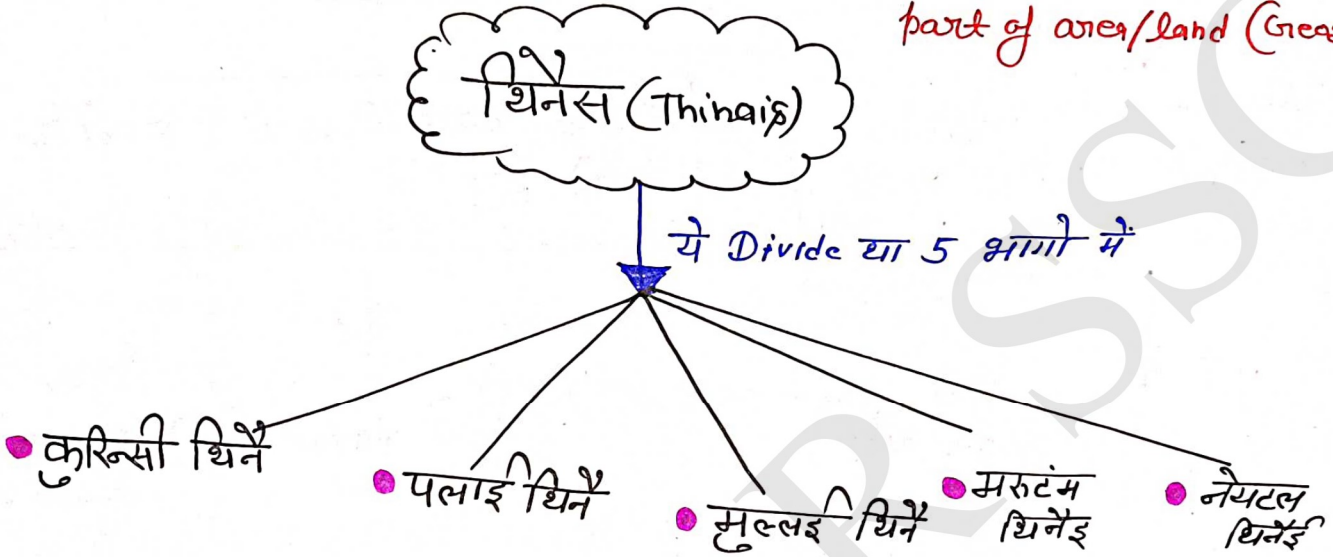 part of area/land
थिनैस (Thinais)
ये Divide था 5 भागो में
कुरिन्सी थिनै
पलाई थिनै
मुल्लई थिनै
मरुटंम
थिनैइ
नेयटल
थिनैई
R SSC